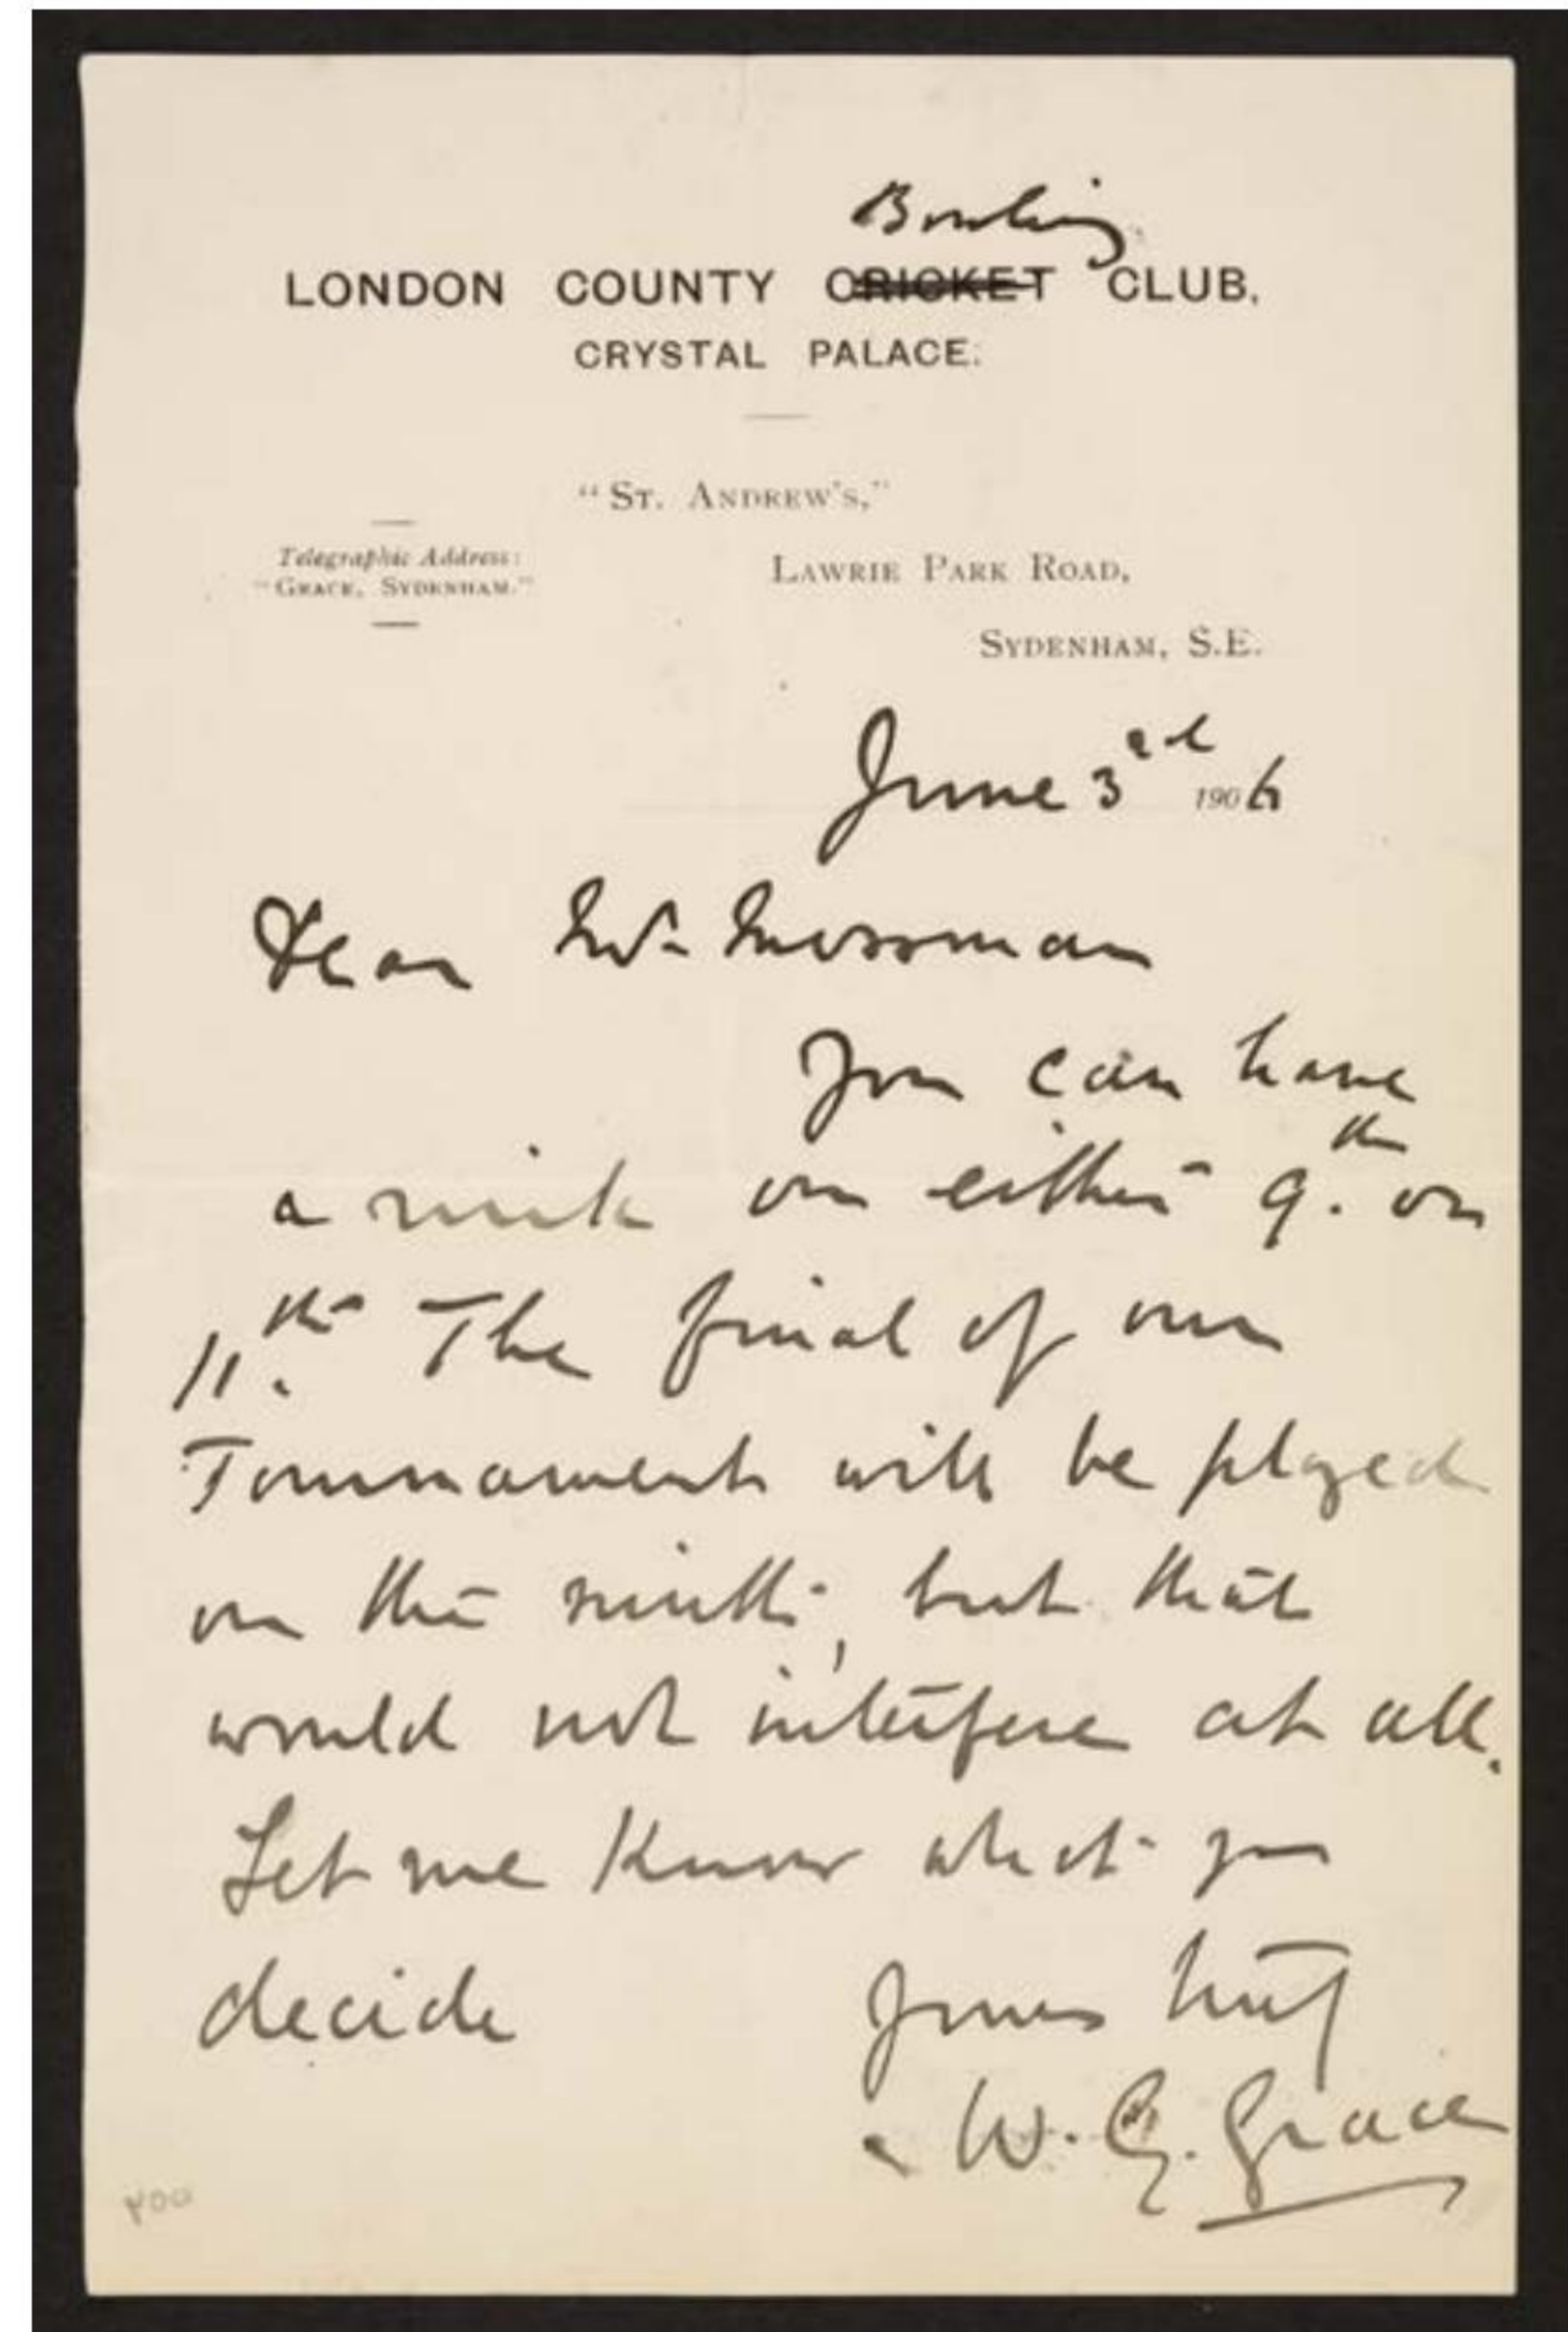 Bowling
LONDON COUNTY CRICKET CLUB,
CRYSTAL PALACE.
"ST. ANDREW'S,"
Telegraphic Address:
"GRACE, SYDENHAM."
LAWRIE PARK ROAD,
SYDENHAM, S.E.
June 3rd 1906
Dear Mr. Mossman
You can have
a rink on either 9th. or
11th. The final of our
Tournament will be played
on the ninth, but that
would not interfere at all.
Let me Know what you
decide
Yours truly
W. G. Grace